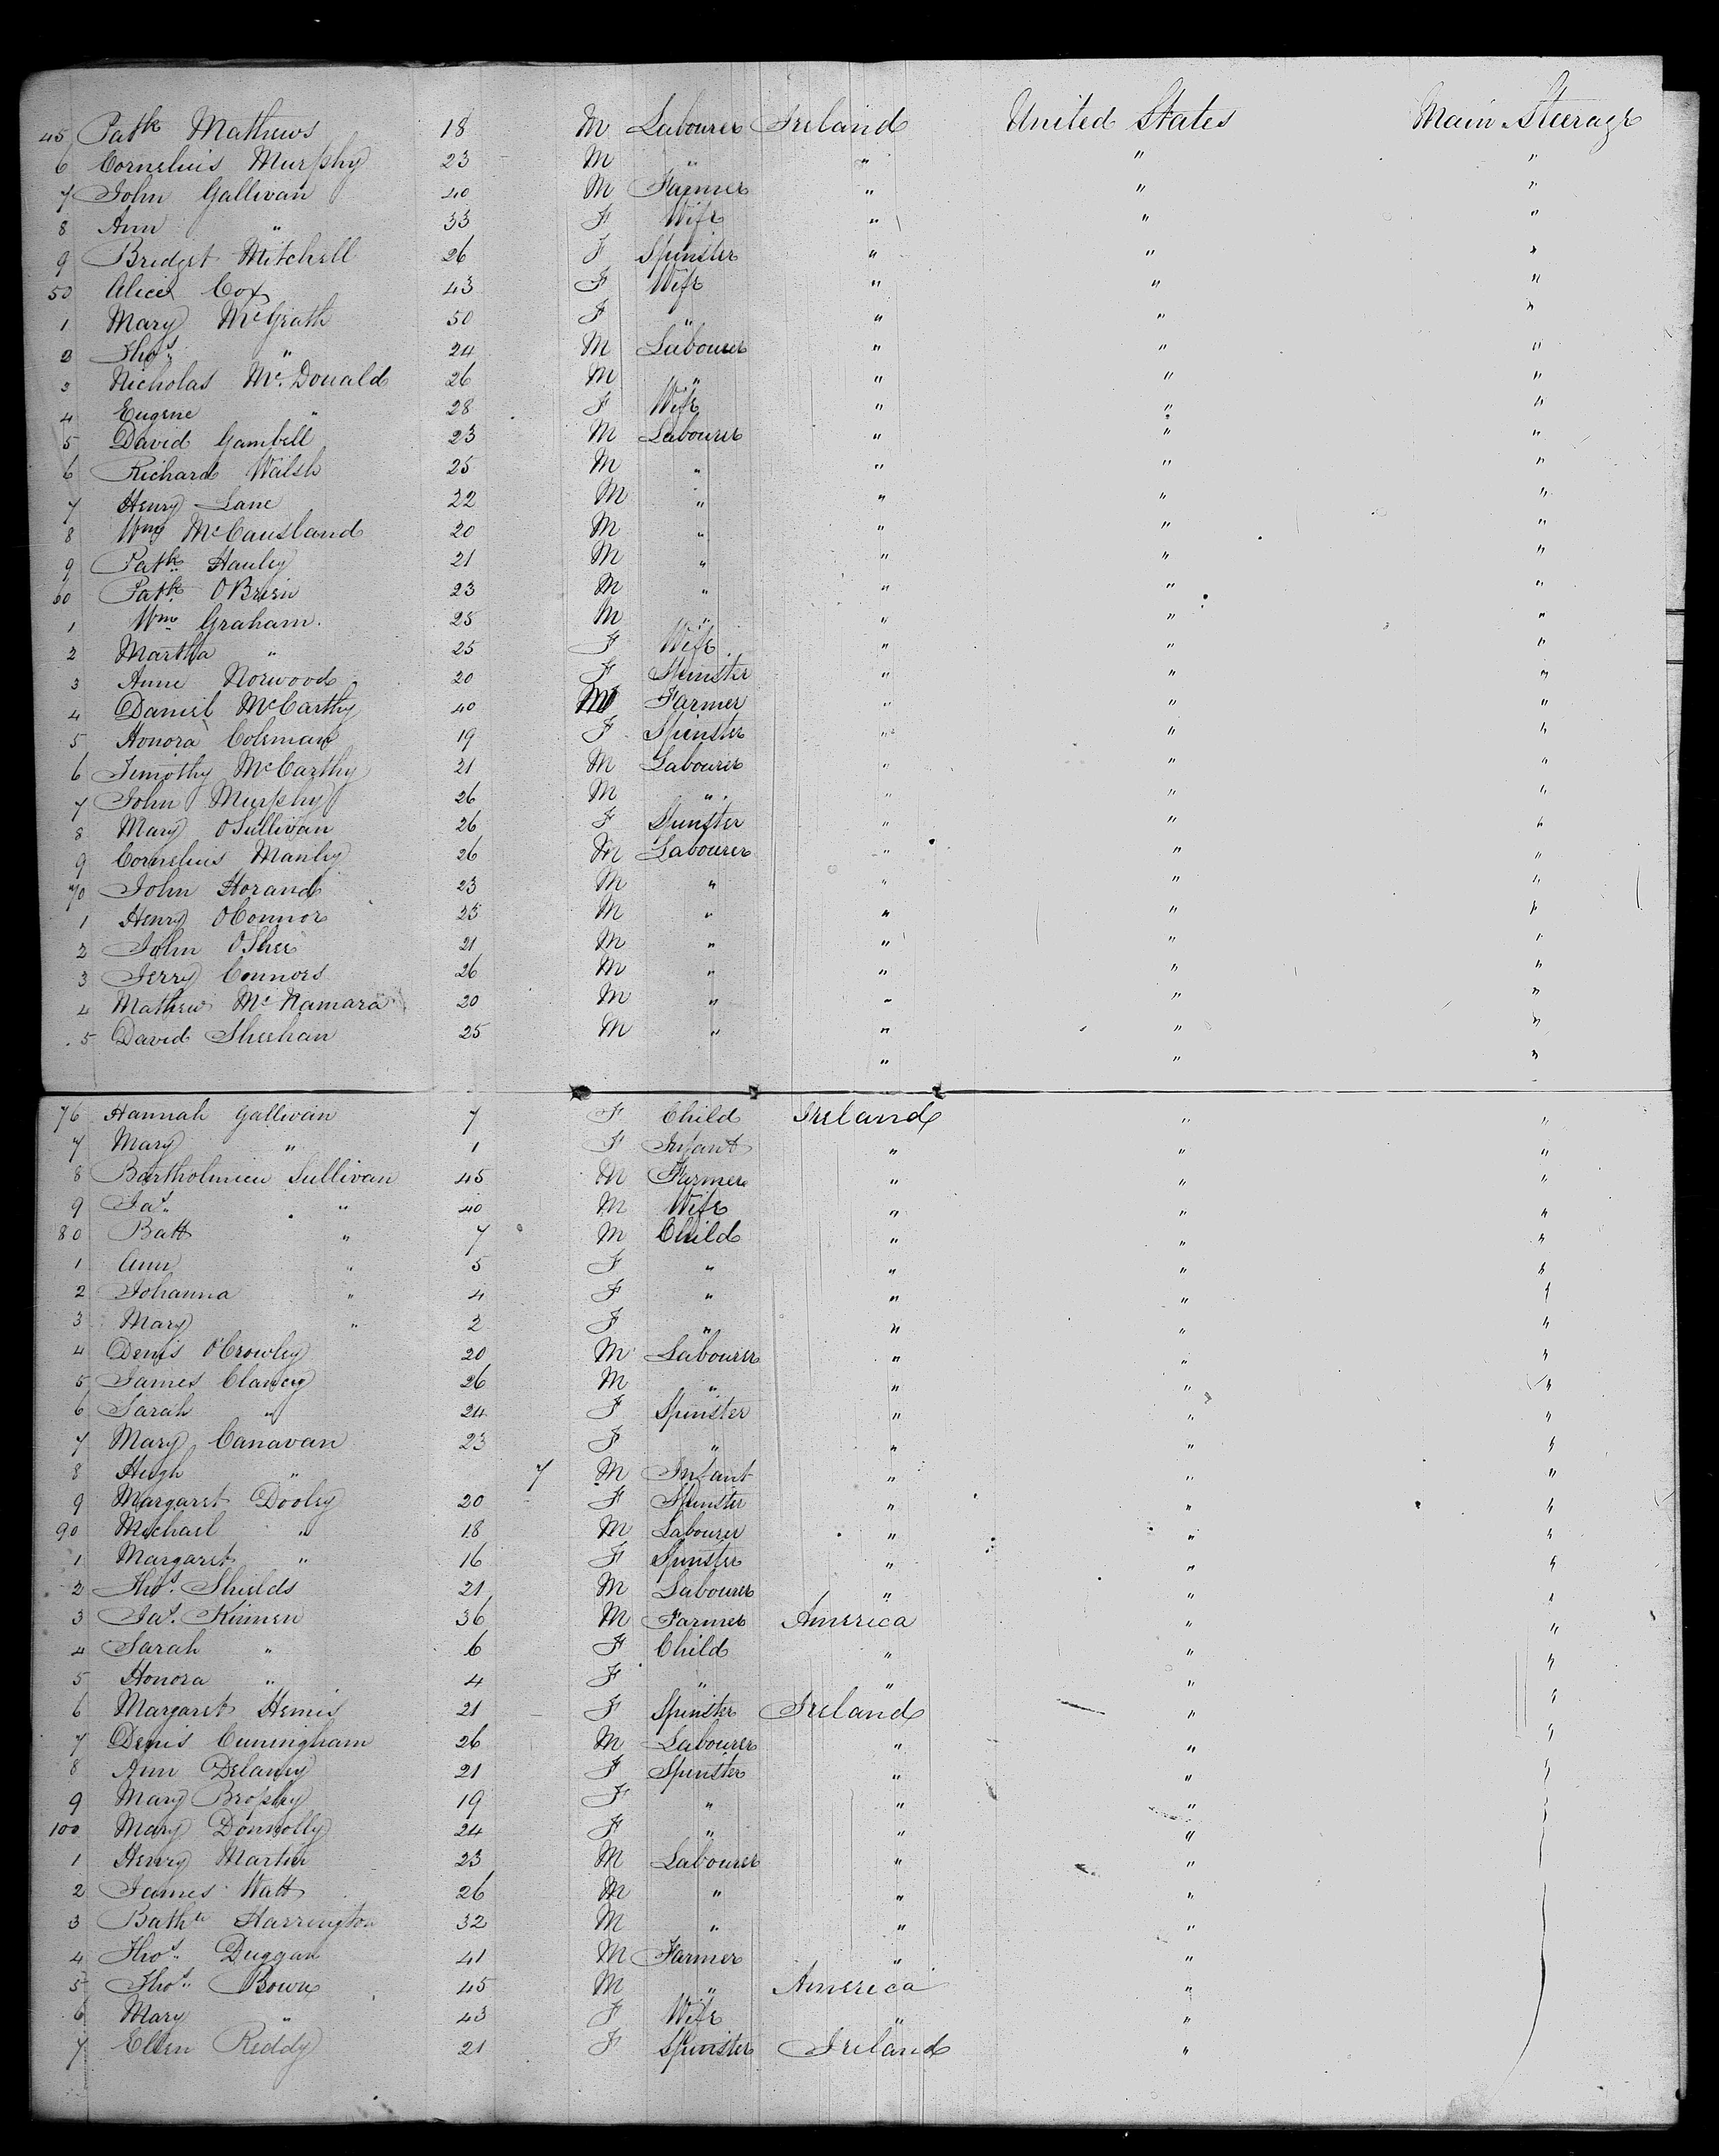 45 Patk Mathews 18 M Labourer Ireland United States Main Steerage
6 Cornelius Murphy 23 M " " " "
7 John Gallivan 40 M Farmer " " "
8 Ann " 33 F Wife " " "
9 Bridget Mitchell 26 F Spinster " " "
50 Alice Cox 43 F Wife " " "
1 Mary McGrath 50 F " " " "
2 Thos " 24 M Labourer " " "
3 Nicholas Mc.Donald 26 M " " " "
4 Eugene " 28 F Wife " " "
5 David Gambell 23 M Labourer " " "
6 Richard Walsh 25 M " " " "
7 Henry Lane 22 M " " " "
8 Wm McCausland 20 M " " " "
9 Patk Hanley 21 M " " " "
60 Patk OBrien 23 M " " " "
1 Wm Graham. 25 M " " " "
2 Martha " 25 F Wife " " "
3 Anne Norwood 20 F Spinster " " "
4 Daniel McCarthy 40 M Farmer " " "
5 Honora Coleman 19 F Spinster " " "
6 Timothy McCarthy 21 M Labourer " " "
7 John Murphy 26 M " " " "
8 Mary OSullivan 26 F Spinster " " "
9 Cornelius Manley 26 M Labourer " " "
70 John Horand 23 M " " " "
1 Henry OConnor 25 M " " " "
2 John OShee 21 M " " " "
3 Jerry Connors 26 M " " " "
4 Mathew McNamara 20 M " " " "
5 David Sheehan 25 M " " " "
" " "
76 Hannah Gallivan 7 F Child Ireland " "
7 Mary " 1 F Infant " " "
8 Bartholmieu Sullivan 45 M Farmer " " "
9 Jas " 40 M Wife " " "
80 Batt " 7 M Child " " "
1 Ann " 5 F " " " "
2 Johanna " 4 F " " " "
3 Mary " 2 F " " " "
4 Denis O'Crowley 20 M Labourer " " "
5 James Clancy 26 M " " " "
6 Sarah " 24 F Spinster " " "
7 Mary Canavan 23 F " " " "
8 Hugh " 7 M Infant " " "
9 Margaret Dooley 20 F Spinster " " "
90 Michael " 18 M Labourer " " "
1 Margaret " 16 F Spinster " " "
2 Thos. Shields 21 M Labourer " " "
3 Jas. Kinnen 36 M Farmer America " "
4 Sarah " 6 F Child " " "
5 Honora " 4 F " " " "
6 Margaret Hemis 21 F Spinster Ireland " "
7 Denis Cuningham 26 M Labourer " " "
8 Ann Delaney 21 F Spinster " " "
9 Mary Brophy 19 F " " " "
100 Mary Donnolly 24 F " " "
1 Henry Martin 23 M Labourer " "
2 James Watt 26 M " " "
3 Bathw Harrington 32 M " " "
4 Thos. Duggan 41 M Farmer " "
5 Thos. Bown 45 M " America "
6 Mary " 43 F Wife " "
7 Ellen Reddy 21 F Spinster Ireland "